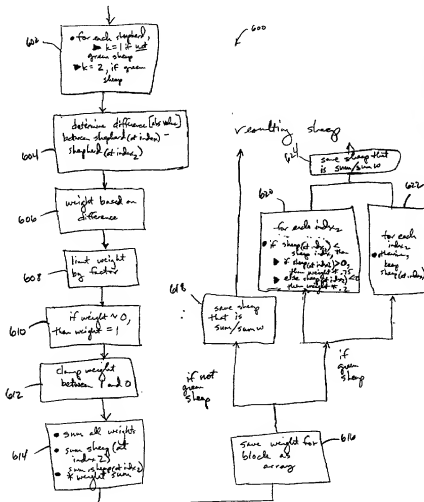 602
• for each shepherd,
▶ k=1 if not
green sheep
▶ k=2, if green
sheep
604
determine difference [abs value]
between shepherd (at index) -
shepherd (at index2)
606
weight based on
difference
608
limit weight
by factor
610
if weight ~ 0,
then weight = 1
612
clamp weight
between 1 and 0
614
• sum all weights
• sum sheep (at
index 2)
• weight sum
600
resulting sheep
624
save sheep that
is sum/sumw
620
for each index2
• if sheep(at index2) ≤
sheep index, then
▶ if sheep(at index2)>0,
then weight *.75
▶ else sheep(at index2)<0
then weight *.2
622
for each
index2
618
save sheep
that is
sum/sumw
if not
green
sheep
if
green
sheep
616
save weight for
block as
array